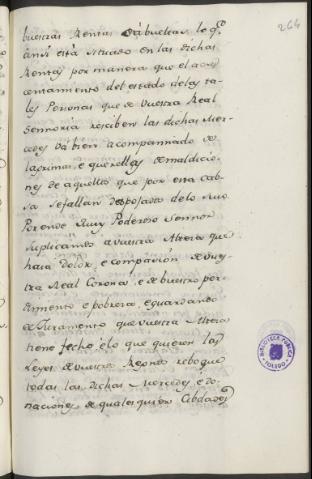 264
buestras Rentas dábueltas lo q.e
ansi está situado en las dichas
Rentas por manera que el acre
centamiento del estado delos ta
les Personas que de Vuestra Real
Sennoria resciben las dichas Mer
cedes vá bien acompannado de
lagrimas, e querellas, de maldicio
nes de aquellos que por esta cab
sa se fallan despojados delo suyo
Porende Muy Poderoso Sennor
Suplicamos a vuestra Alteza que
haia dolor, e compasion de vues
tra Real Corona, e de buestro per
dimento e pobreza, eguardando
el Juramento que vuestra Alteza
tiene fecho, elo que quieren las
Leyes de vuestro Regno reboque
todas las dichas Mercedes, e do
naciones de quales quier Cibdades
BIBLIOTECA PUBLICA
TOLEDO